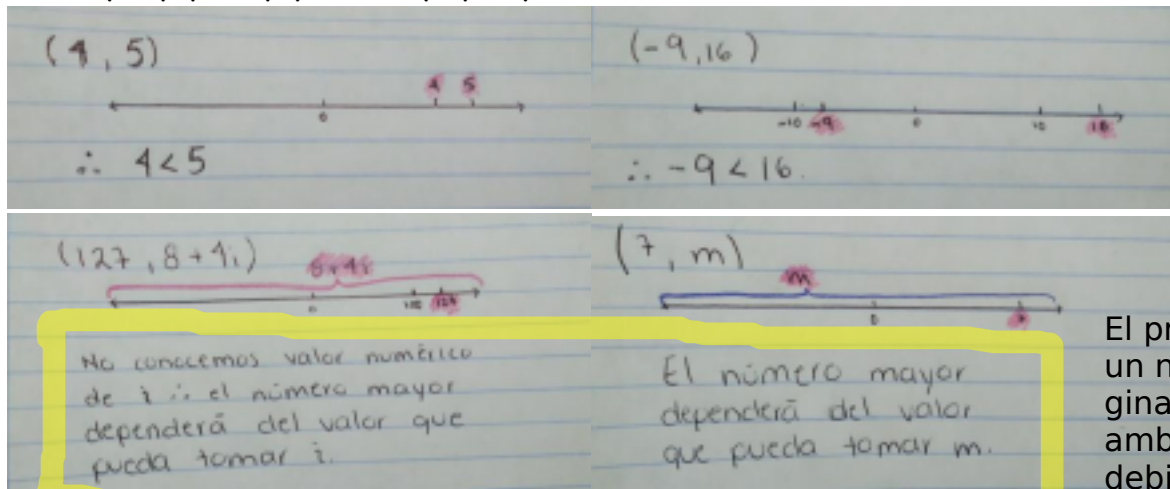 (4, 5)
4 5
0
∴ 4<5
(-9,16)
-10 -9 0 10 16
∴ -9 < 16.
(127, 8+4i)
8+4i
0 127
No conocemos valor numérico
de i ∴ el número mayor
dependerá del valor que
pueda tomar i.
(7, m)
m
0 7
El número mayor
dependerá del valor
que pueda tomar m.
El pr
un n
gina
amb
debi